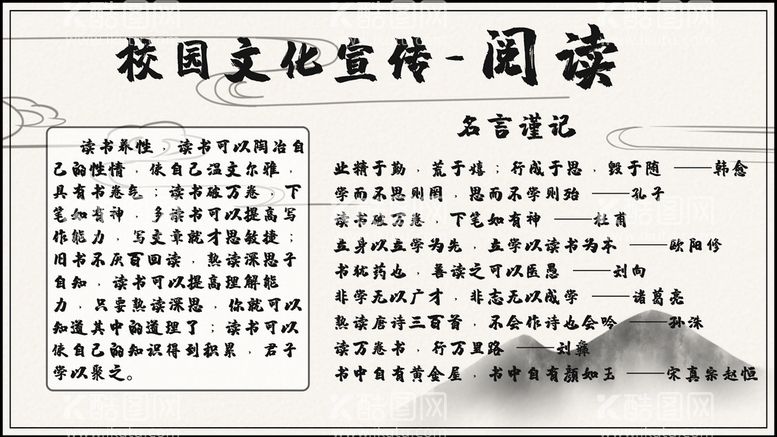 校园文化宣传-阅读
读书养性，读书可以陶冶自
己的性情，使自己温文尔雅，
具有书卷气；读书破万卷，下
笔如有神，多读书可以提高写
作能力，写文章就才思敏捷；
旧书不厌百回读，熟读深思子
自知，读书可以提高理解能
力，只要熟读深思，你就可以
知道其中的道理了；读书可以
使自己的知识得到积累，君子
学以聚之。
名言谨记
业精于勤，荒于嬉；行成于思，毁于随 ——韩愈
学而不思则罔，思而不学则殆 ——孔子
读书破万卷，下笔如有神 ——杜甫
立身以立学为先，立学以读书为本 ——欧阳修
书犹药也，善读之可以医愚 ——刘向
非学无以广才，非志无以成学 ——诸葛亮
熟读唐诗三百首，不会作诗也会吟 ——孙洙
读万卷书，行万里路 ——刘彝
书中自有黄金屋，书中自有颜如玉 ——宋真宗赵恒